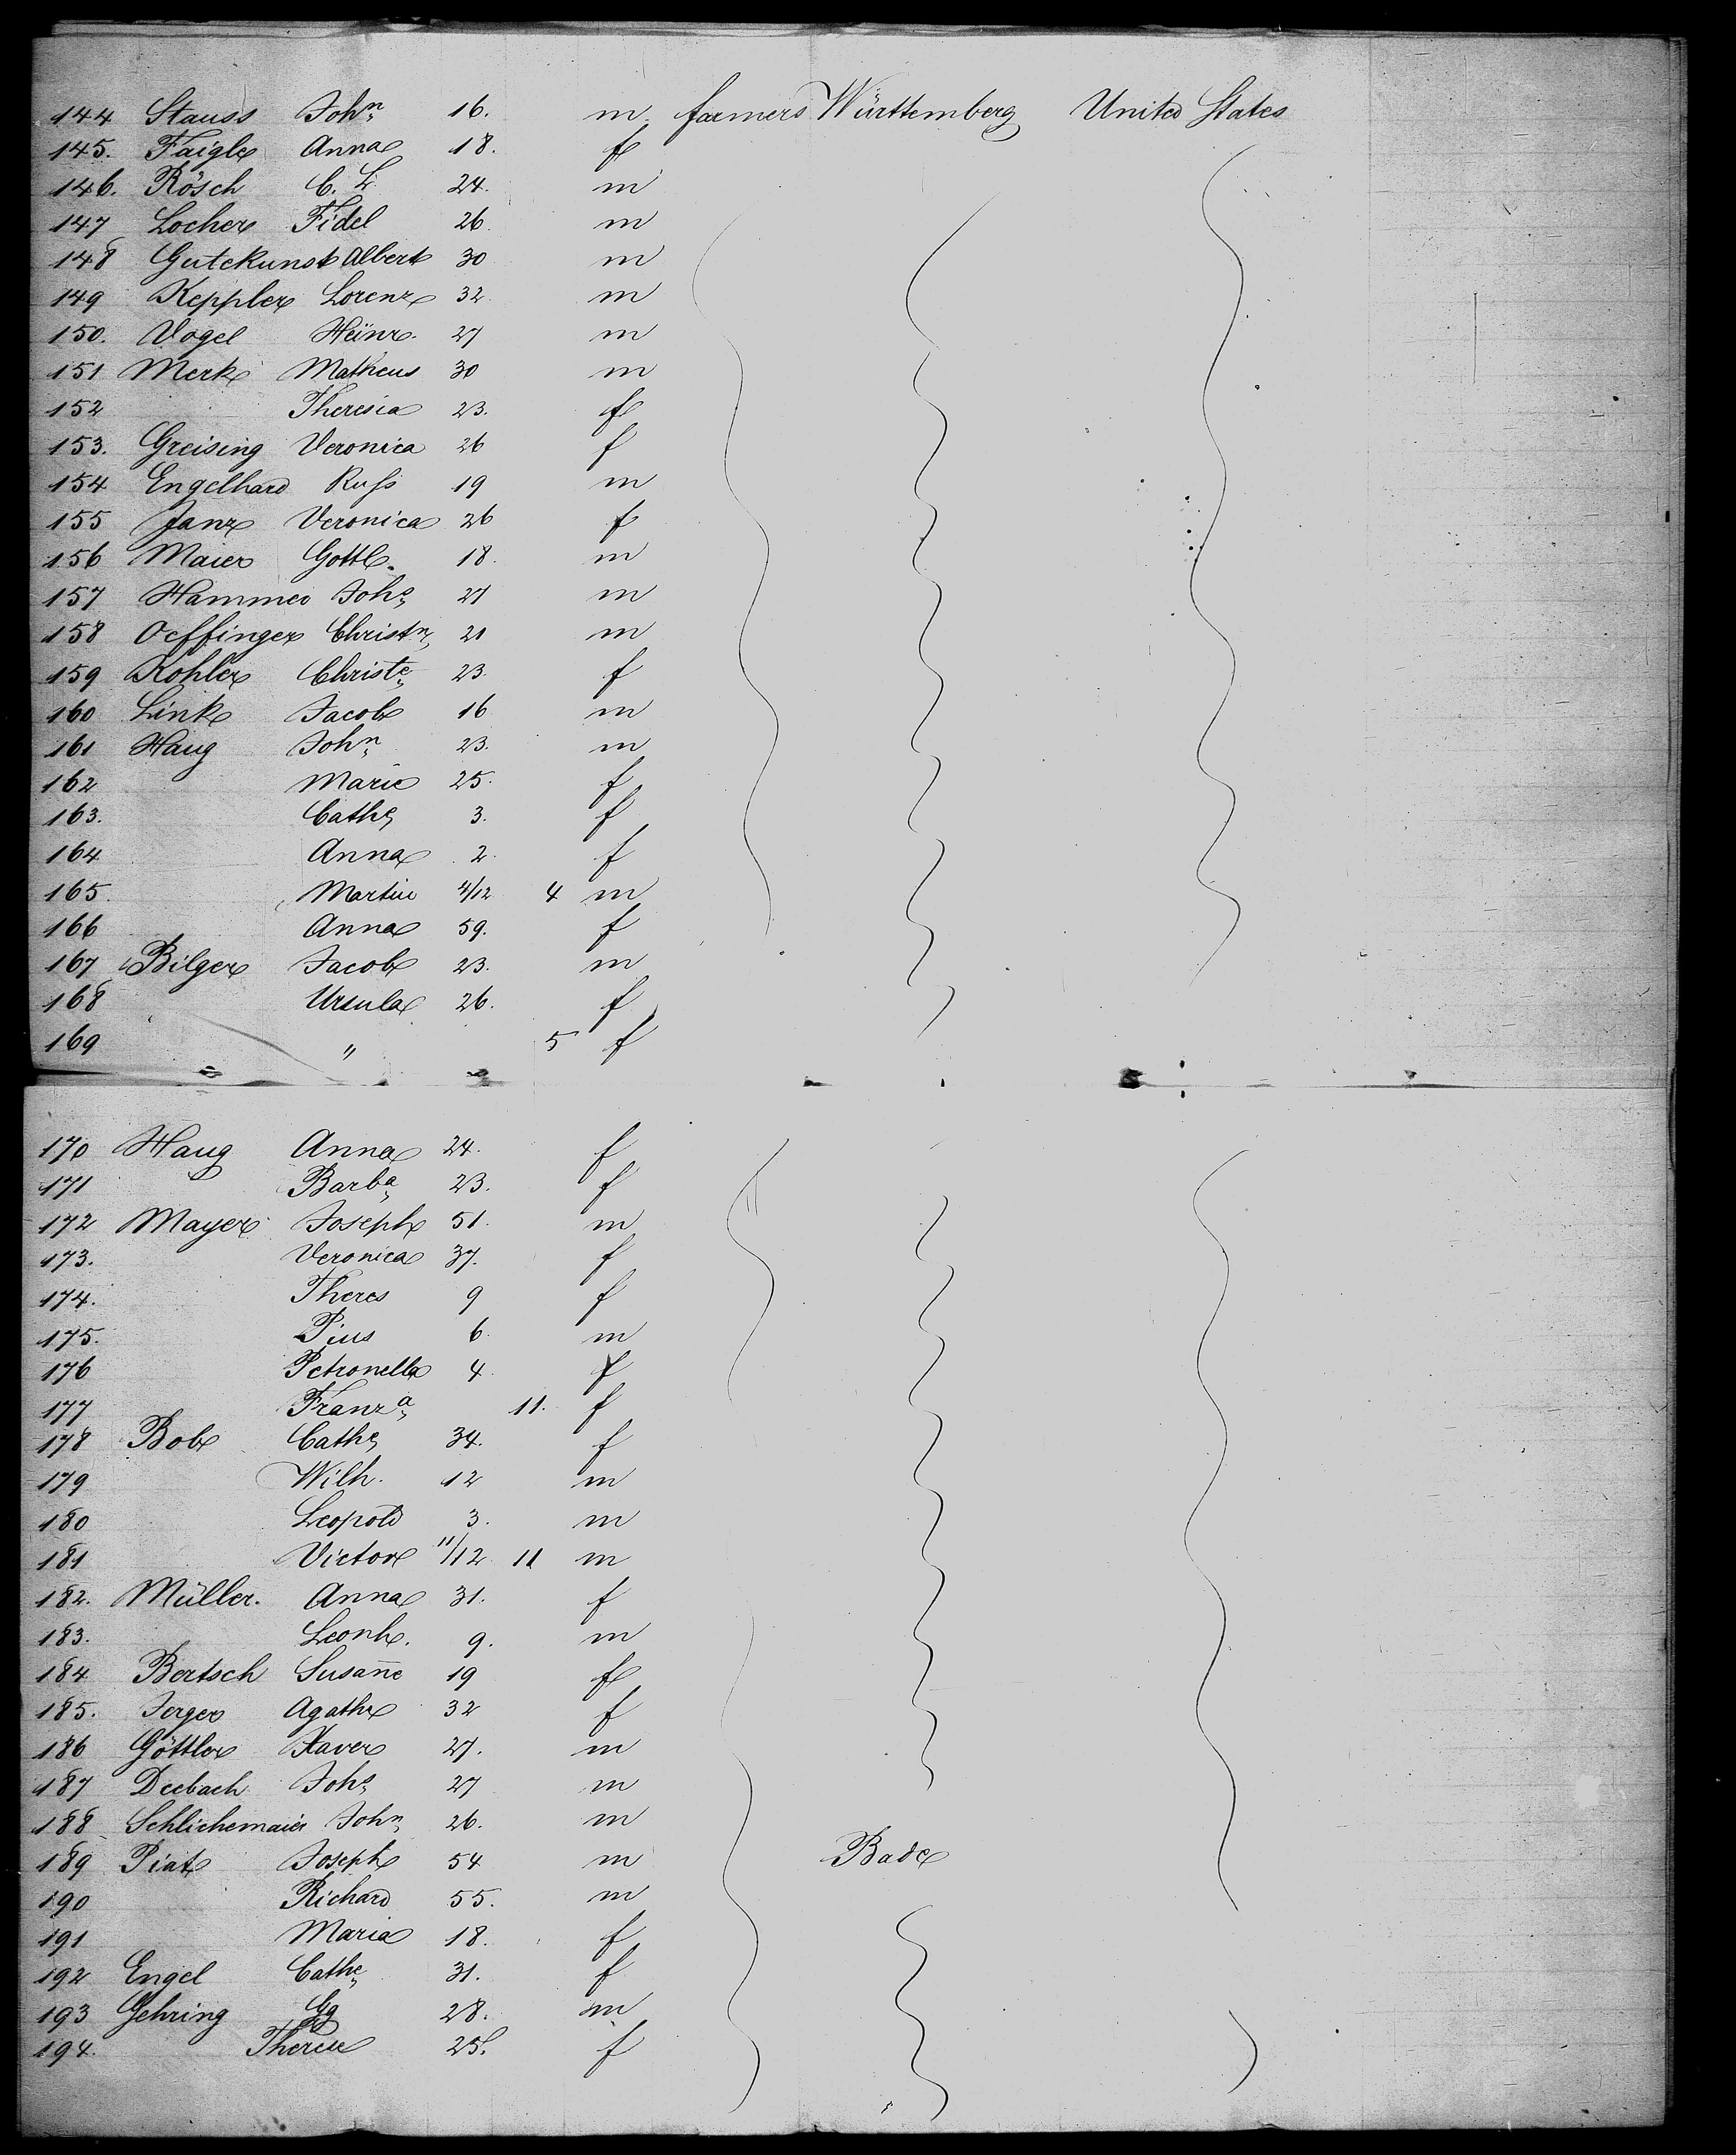 144 Stauss Johⁿ 16. m. farmers Württemberg United States
145. Faigle Anna 18. f
146. Rösch C. L. 24. m
147 Locher Fidel 26. m
148 Gutekunst Albert 30 m
149 Keppler Lorenz 32. m
150. Vogel Heinr. 27 m
151 Merk Matheus 30 m
152 Theresia 23. f
153. Greising Veronica 26 f
154 Engelhard Russ 19 m
155 Janz Veronica 26 f
156 Maier Gottl. 18. m
157 Hammer Johˢ 27 m
158 Oeffinger Christⁿ 21 m
159 Kohler Christᵉ 23. f
160 Link Jacob 16 m
161 Haug Johⁿ 23. m
162 Marie 25. f
163. Cathᵉ 3. f
164 Anna 2. f
165. Martin 4/12 4 m
166 Anna 59. f
167 Bilger Jacob 23. m
168 Ursula 26. f
169 " 5 f
170 Haug Anna 24. f
171 Barbᵃ 23. f
172 Mayer Joseph 51. m
173. Veronica 37. f
174. Theres 9 f
175. Pius 6. m
176 Petronella 4. f
177 Franzᵃ 11. f
178 Bob Cathᵉ 34. f
179 Wilh. 12 m
180 Leopold 3. m
181 Victor 11/12 11 m
182. Müller. Anna 31. f
183. Leonh. 9. m
184 Bertsch Susan̄e 19 f
185. Jerger Agathe 32 f
186 Göttler Xaver 27. m
187 Deebach Johˢ 27 m
188 Schlichemaier Johⁿ 26. m
189 Piat Joseph 54 m Bade
190 Richard 55. m
191 Maria 18. f
192 Engel Cathᵉ 31. f
193 Gehring Gg 28. m
194. Therese 25. f